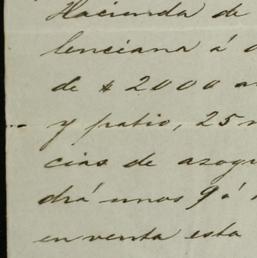 Hacienda de
lenciana á
de $ 2000
y patio, 25
cias de azog
drá unos 9 á
en venta esta